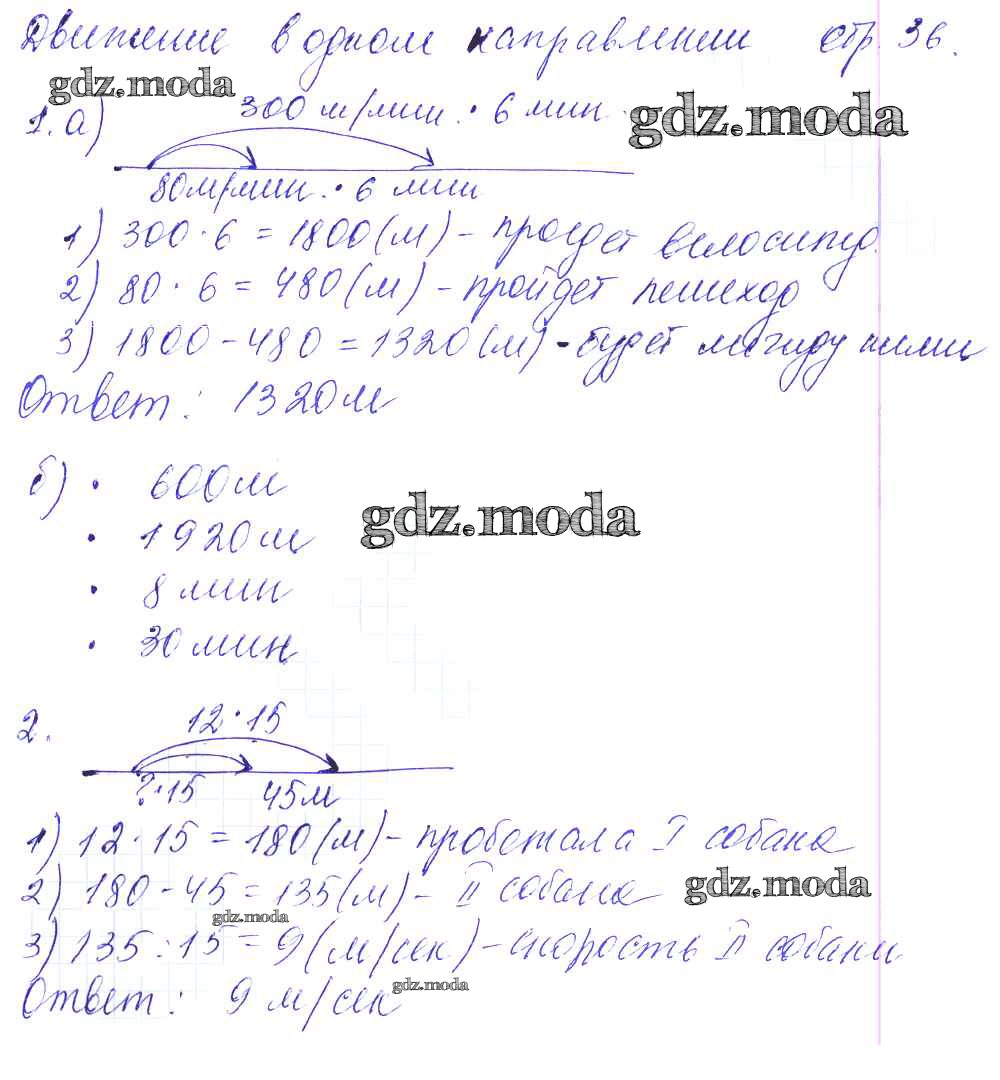 Движение в одном направлении стр. 36.
gdz.moda
1. а) 300 м/мин. · 6 мин.
gdz.moda
80м/мин. · 6 мин
1) 300 · 6 = 1800 (м) – проедет велосипед.
2) 80 · 6 = 480 (м) – пройдет пешеход
3) 1800 – 480 = 1320 (м) – будет между ними
Ответ: 1320м
б) · 600м
gdz.moda
· 1920м
· 8 мин
· 30 мин
2. 12 · 15
? · 15 45м
1) 12 · 15 = 180 (м) – пробежала I собака
2) 180 – 45 = 135 (м) – II собака
gdz.moda
gdz.moda
3) 135 : 15 = 9 (м/сек) – скорость II собаки
gdz.moda
Ответ: 9 м/сек